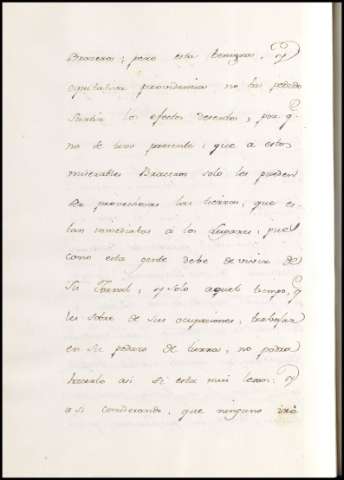 Braceros; pero esta benigna, y
equitativa providencia no ha podido
surtir los efectos deseados, por q.
no se tuvo presente, que a estos
miserables Braceros solo les pueden
ser provechosas las tierras, que es-
tan inmediatas á los Lugares, pues
como esta gente debe de vivir de
su Jornal, y solo aquel tiempo, q
les sobre de sus ocupaciones, trabajar
en su pedazo de tierra, no podra
hacerlo asi si esta mui lexos: y
asi considerando, que ninguno irá